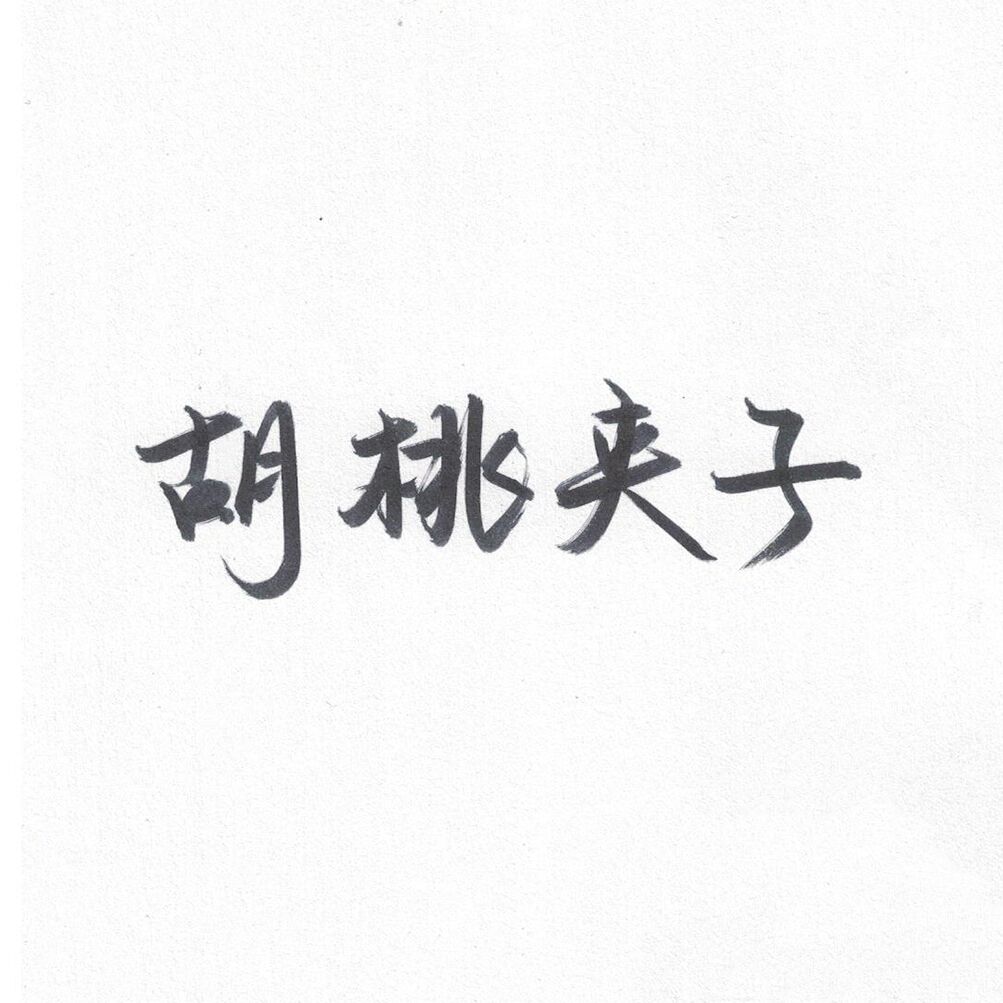 胡桃夹子